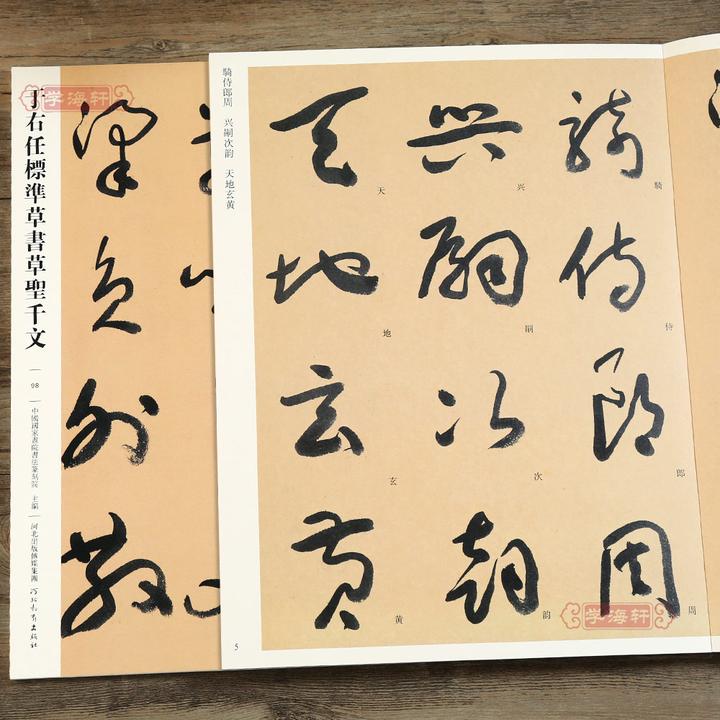 于右任標準草書草聖千文
98
中國國家畫院書法篆刻院 主編
河北出版傳媒集團 河北教育出版社
騎侍郎周 兴嗣次韵 天地玄黄
騎侍郎周
兴嗣次韵
天地玄黄
騎
侍
郎
周
兴
嗣
次
韵
天
地
玄
黄
5
学海轩
学海轩